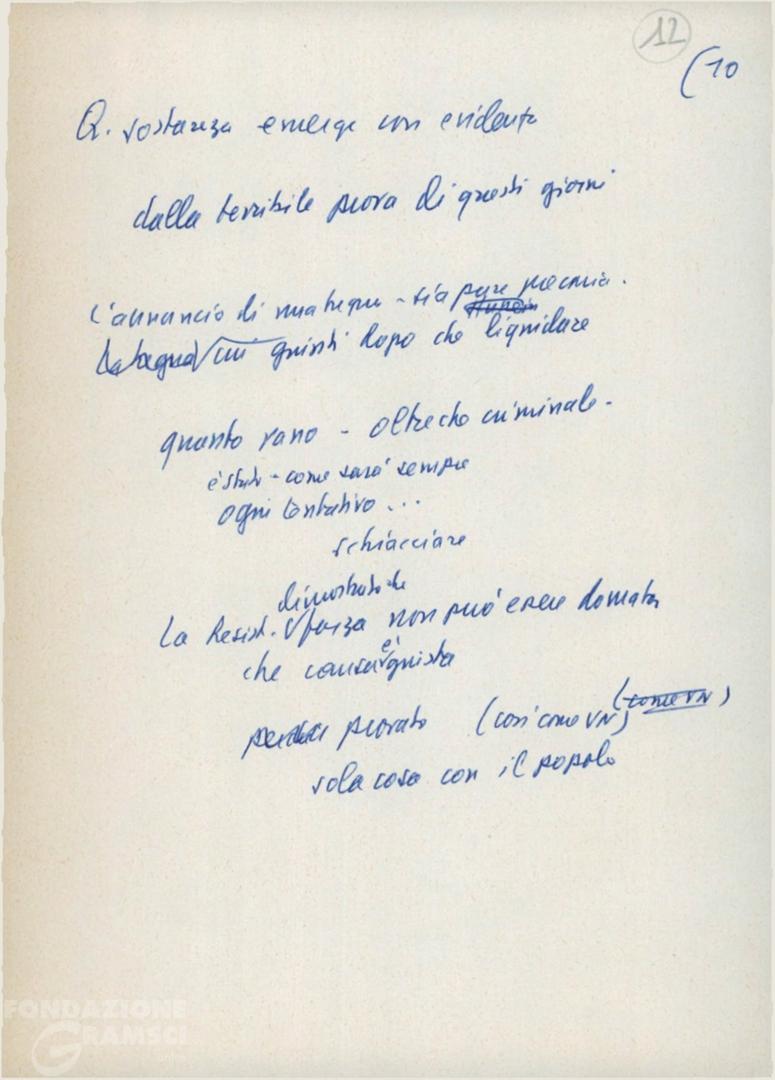 12
(10
Q. sostanza emerge con evidenza
dalla terribile prova di questi giorni
L'annuncio di una tregua - sia pure precaria.
La tregua cui giunti dopo che liquidare
quanto vano - oltreché criminale -
è stato - come sarà sempre
ogni tentativo ...
schiacciare
dimostrato che
La Resist. forza non può essere domata
che causa è giusta
perché provato (così come VN) (come VN)
sola cosa con il popolo
FONDAZIONE
GRAMSCI